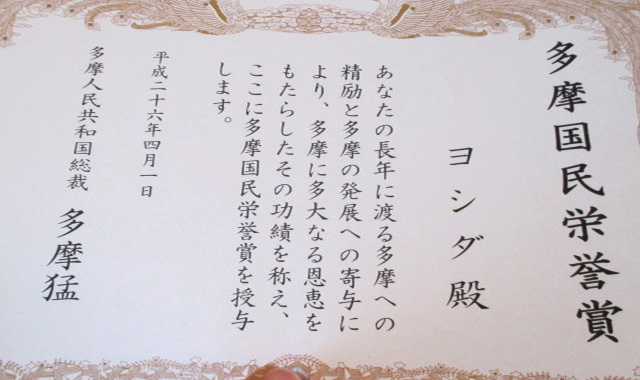 多摩国民栄誉賞
ヨシダ殿
あなたの長年に渡る多摩への
精励と多摩の発展への寄与に
より、多摩に多大なる恩恵を
もたらしたその功績を称え、
ここに多摩国民栄誉賞を授与
します。
平成二十六年四月一日
多摩人民共和国総裁
多摩猛